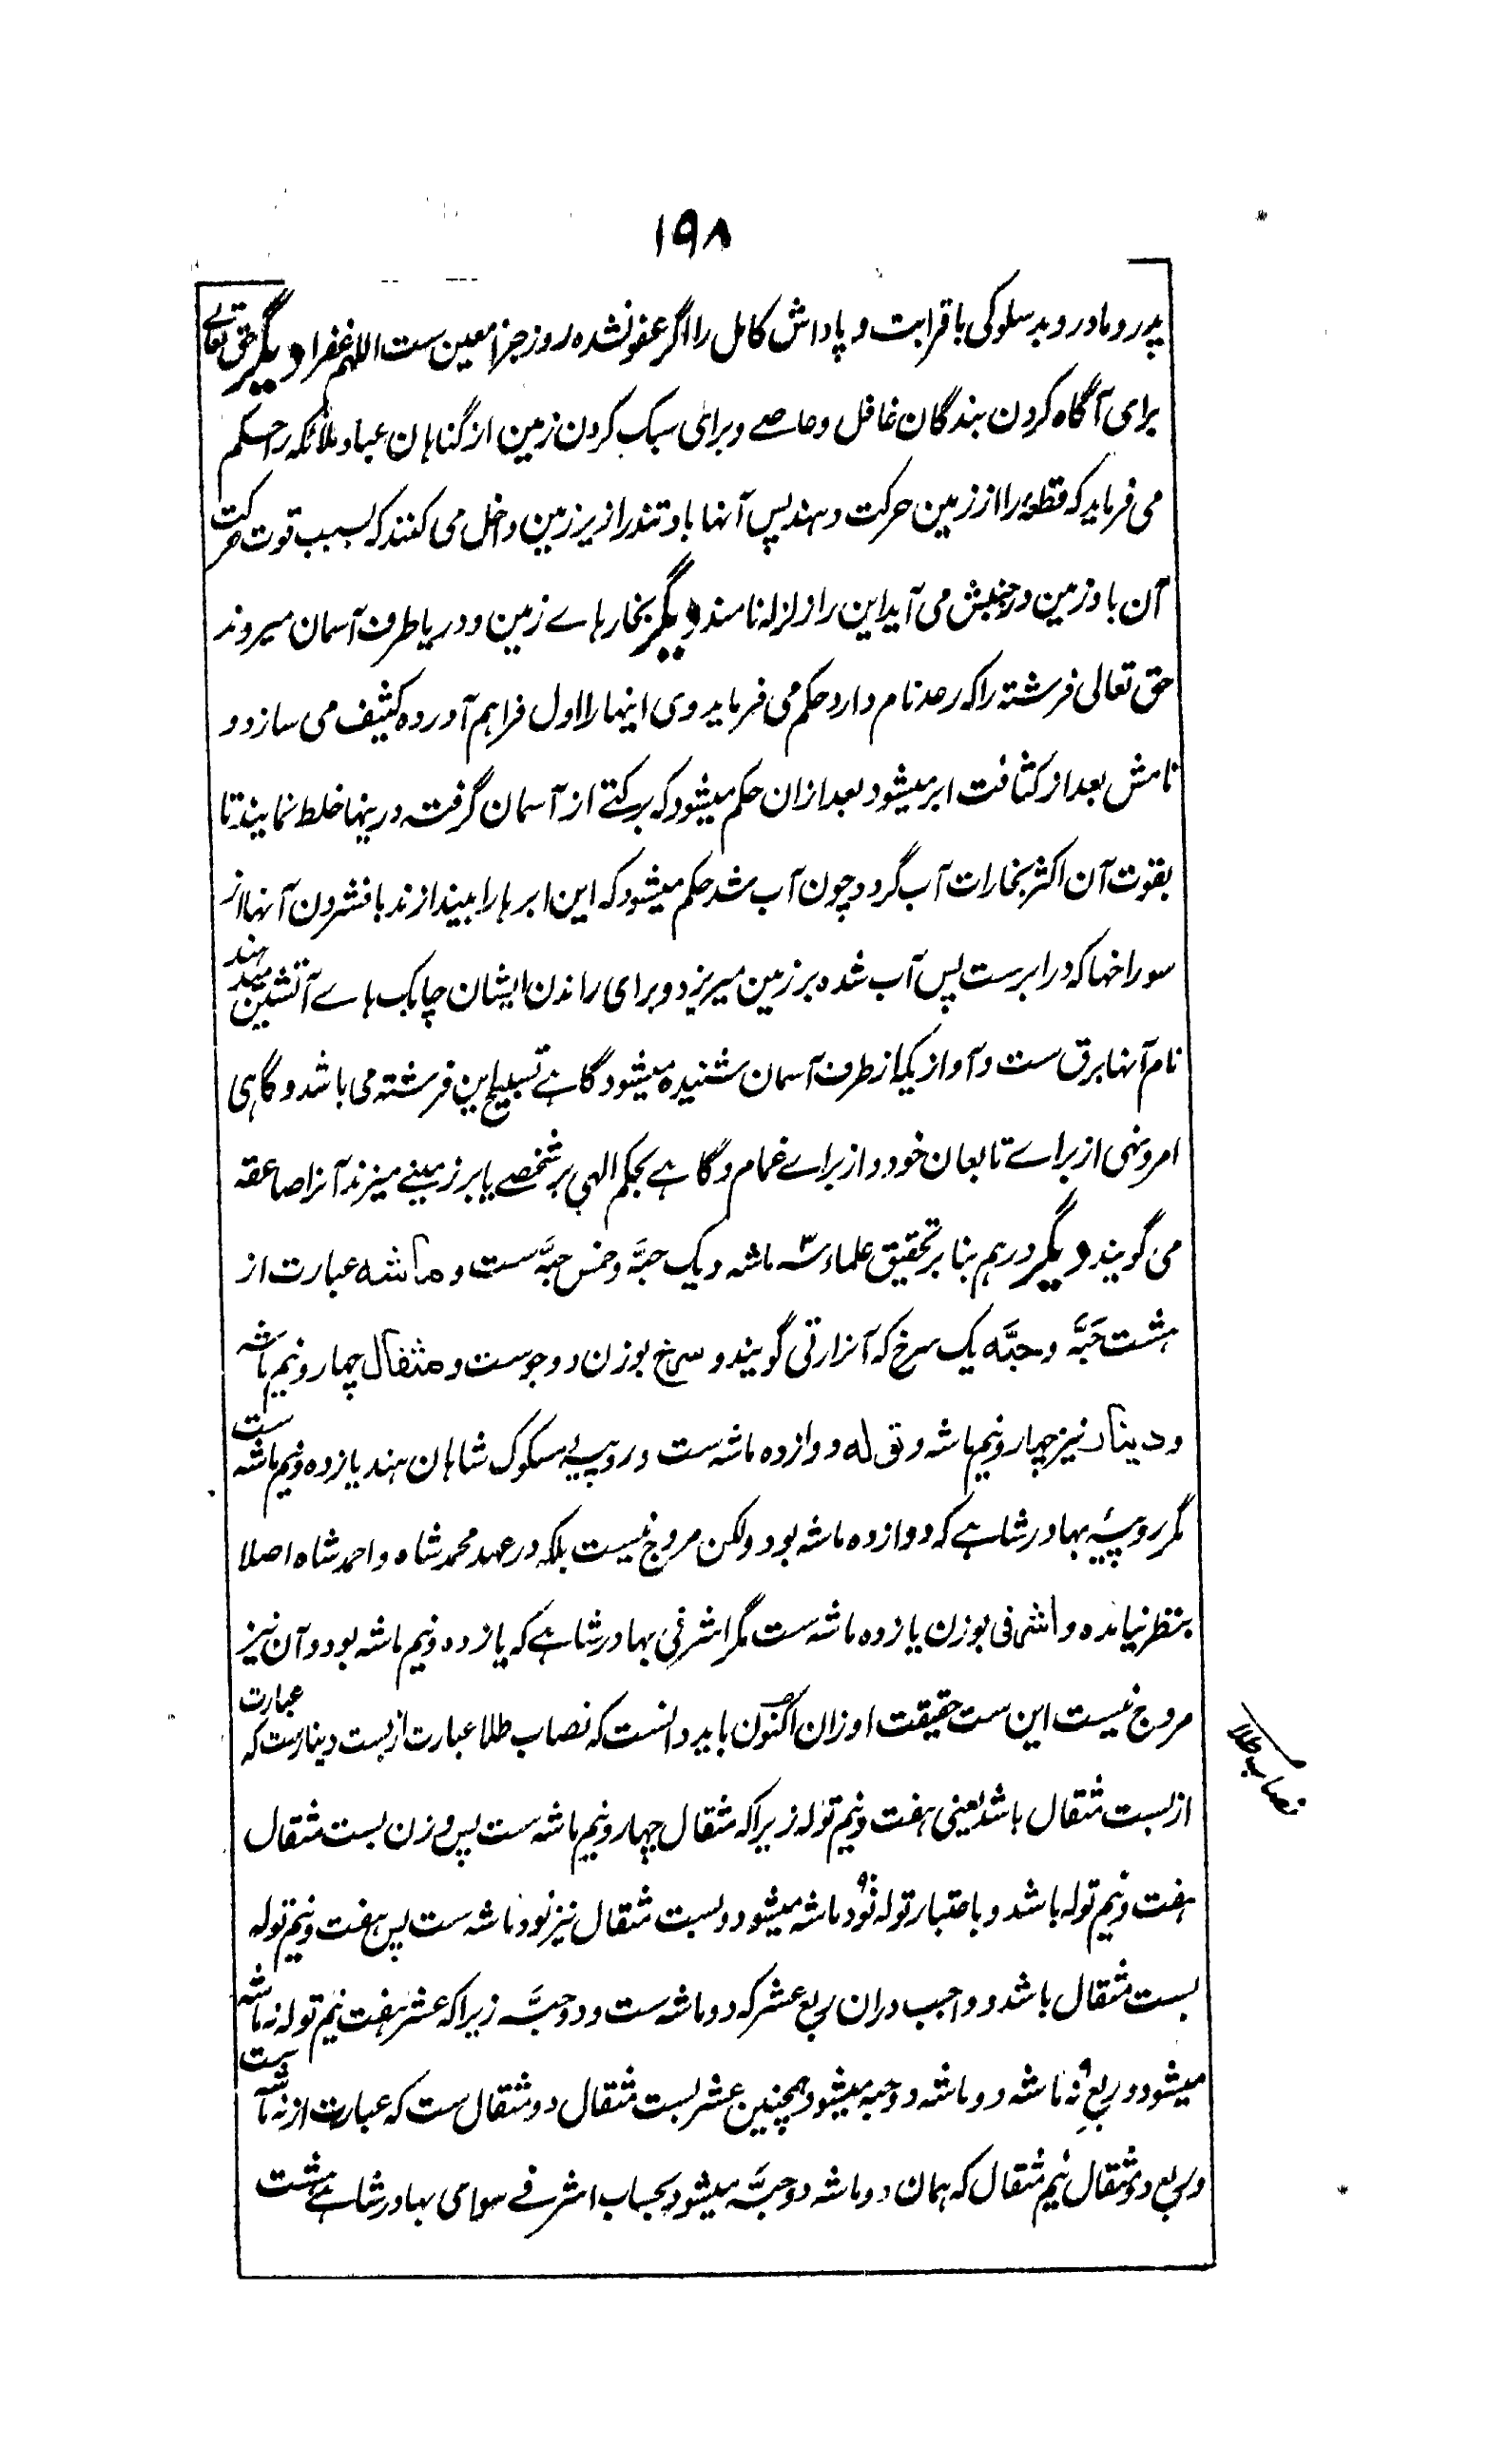 ۱۹۸
پدر و مادر و بدسلوکی باقرابت و پاداش کامل را اگر عفو نشده روز جزا معین ست اللهم غفرا دیگر حق تعالے
برای آگاه کردن بندگان غافل و عاصے و برای سبک کردن زمین از گناهان عباد ملائکه را حکم
می فرماید که قطعهٔ را از زمین حرکت دهند پس آنها باد تند را زیر زمین داخل می کنند که بسبب قوت حرکت
آن باد زمین در جنبش می آید این را زلزله نامند دیگر بخارهاے زمین و دریا طرف آسمان میروند
حق تعالی فرشتهٔ را که رعد نام دارد حکم می فرماید وی اینها را اول فراهم آورده کثیف می سازد و
نامش بعد از کثافت ابر میشود بعد ازان حکم میشود که برکتے از آسمان گرفته درینها خلط نمایند تا
بقوت آن اکثر بخارات آب گردد چون آب شد حکم میشود که این ابرها را بیندازند بافشردن آنها از
سوراخها که در ابرست پس آب شده بر زمین میریزد و برای راندن ایشان چابک هاے آتشین میدهند
نام آنها برق ست و آوازیکه از طرف آسمان شنیده میشود گاہے تسبیح این فرشته می باشد و گاهی
امر و نهی از براے تابعان خود و از براے غمام و گاہے بحکم الهی بر شخصے یا بر زمینے میزند آنرا صاعقه
می گویند دیگر درهم بنا بر تحقیق علماء سه ماشه و یک حبّه و خمس حبّه ست و ماشه عبارت از
هشت حبّه و حبّه یک سرخ که آنرا رتی گویند و سرخ بوزن دو جوست و مثقال چهار و نیم ماشه
و دینار نیز چهار و نیم ماشه و توله دوازده ماشه ست و روپیه مسکوک شاهان هند یازده و نیم ماشه ست
مگر روپیهٔ بهادر شاهے که دوازده ماشه بود ولکن مروج نیست بلکه در عهد محمد شاه و احمد شاه اصلا
بنظر نیامده و اشرفی بوزن یازده ماشه ست مگر اشرفی بهادر شاهے که یازده و نیم ماشه بود و آن نیز
مروج نیست این ست حقیقت اوزان اکنون باید دانست که نصاب طلا عبارت از بست دینارست که عبارت
نصاب طلا
از بست مثقال باشد یعنی هفت و نیم توله زیرا که مثقال چهار و نیم ماشه ست پس وزن بست مثقال
هفت و نیم توله باشد و باعتبار توله نود ماشه میشود و بست مثقال نیز نود ماشه ست پس هفت و نیم توله
بست مثقال باشد و واجب دران ربع عشر که دو ماشه ست و دو حبّه زیرا که عشر هفت نیم توله نه ماشه
میشود و ربع نه ماشه دو ماشه دو حبه میشود و همچنین عشر بست مثقال دو مثقال ست که عبارت از نه ماشه ست
و ربع دو مثقال نیم مثقال که همان دو ماشه دو حبّه میشود بحساب اشرفے سوای بهادر شاهے هشت